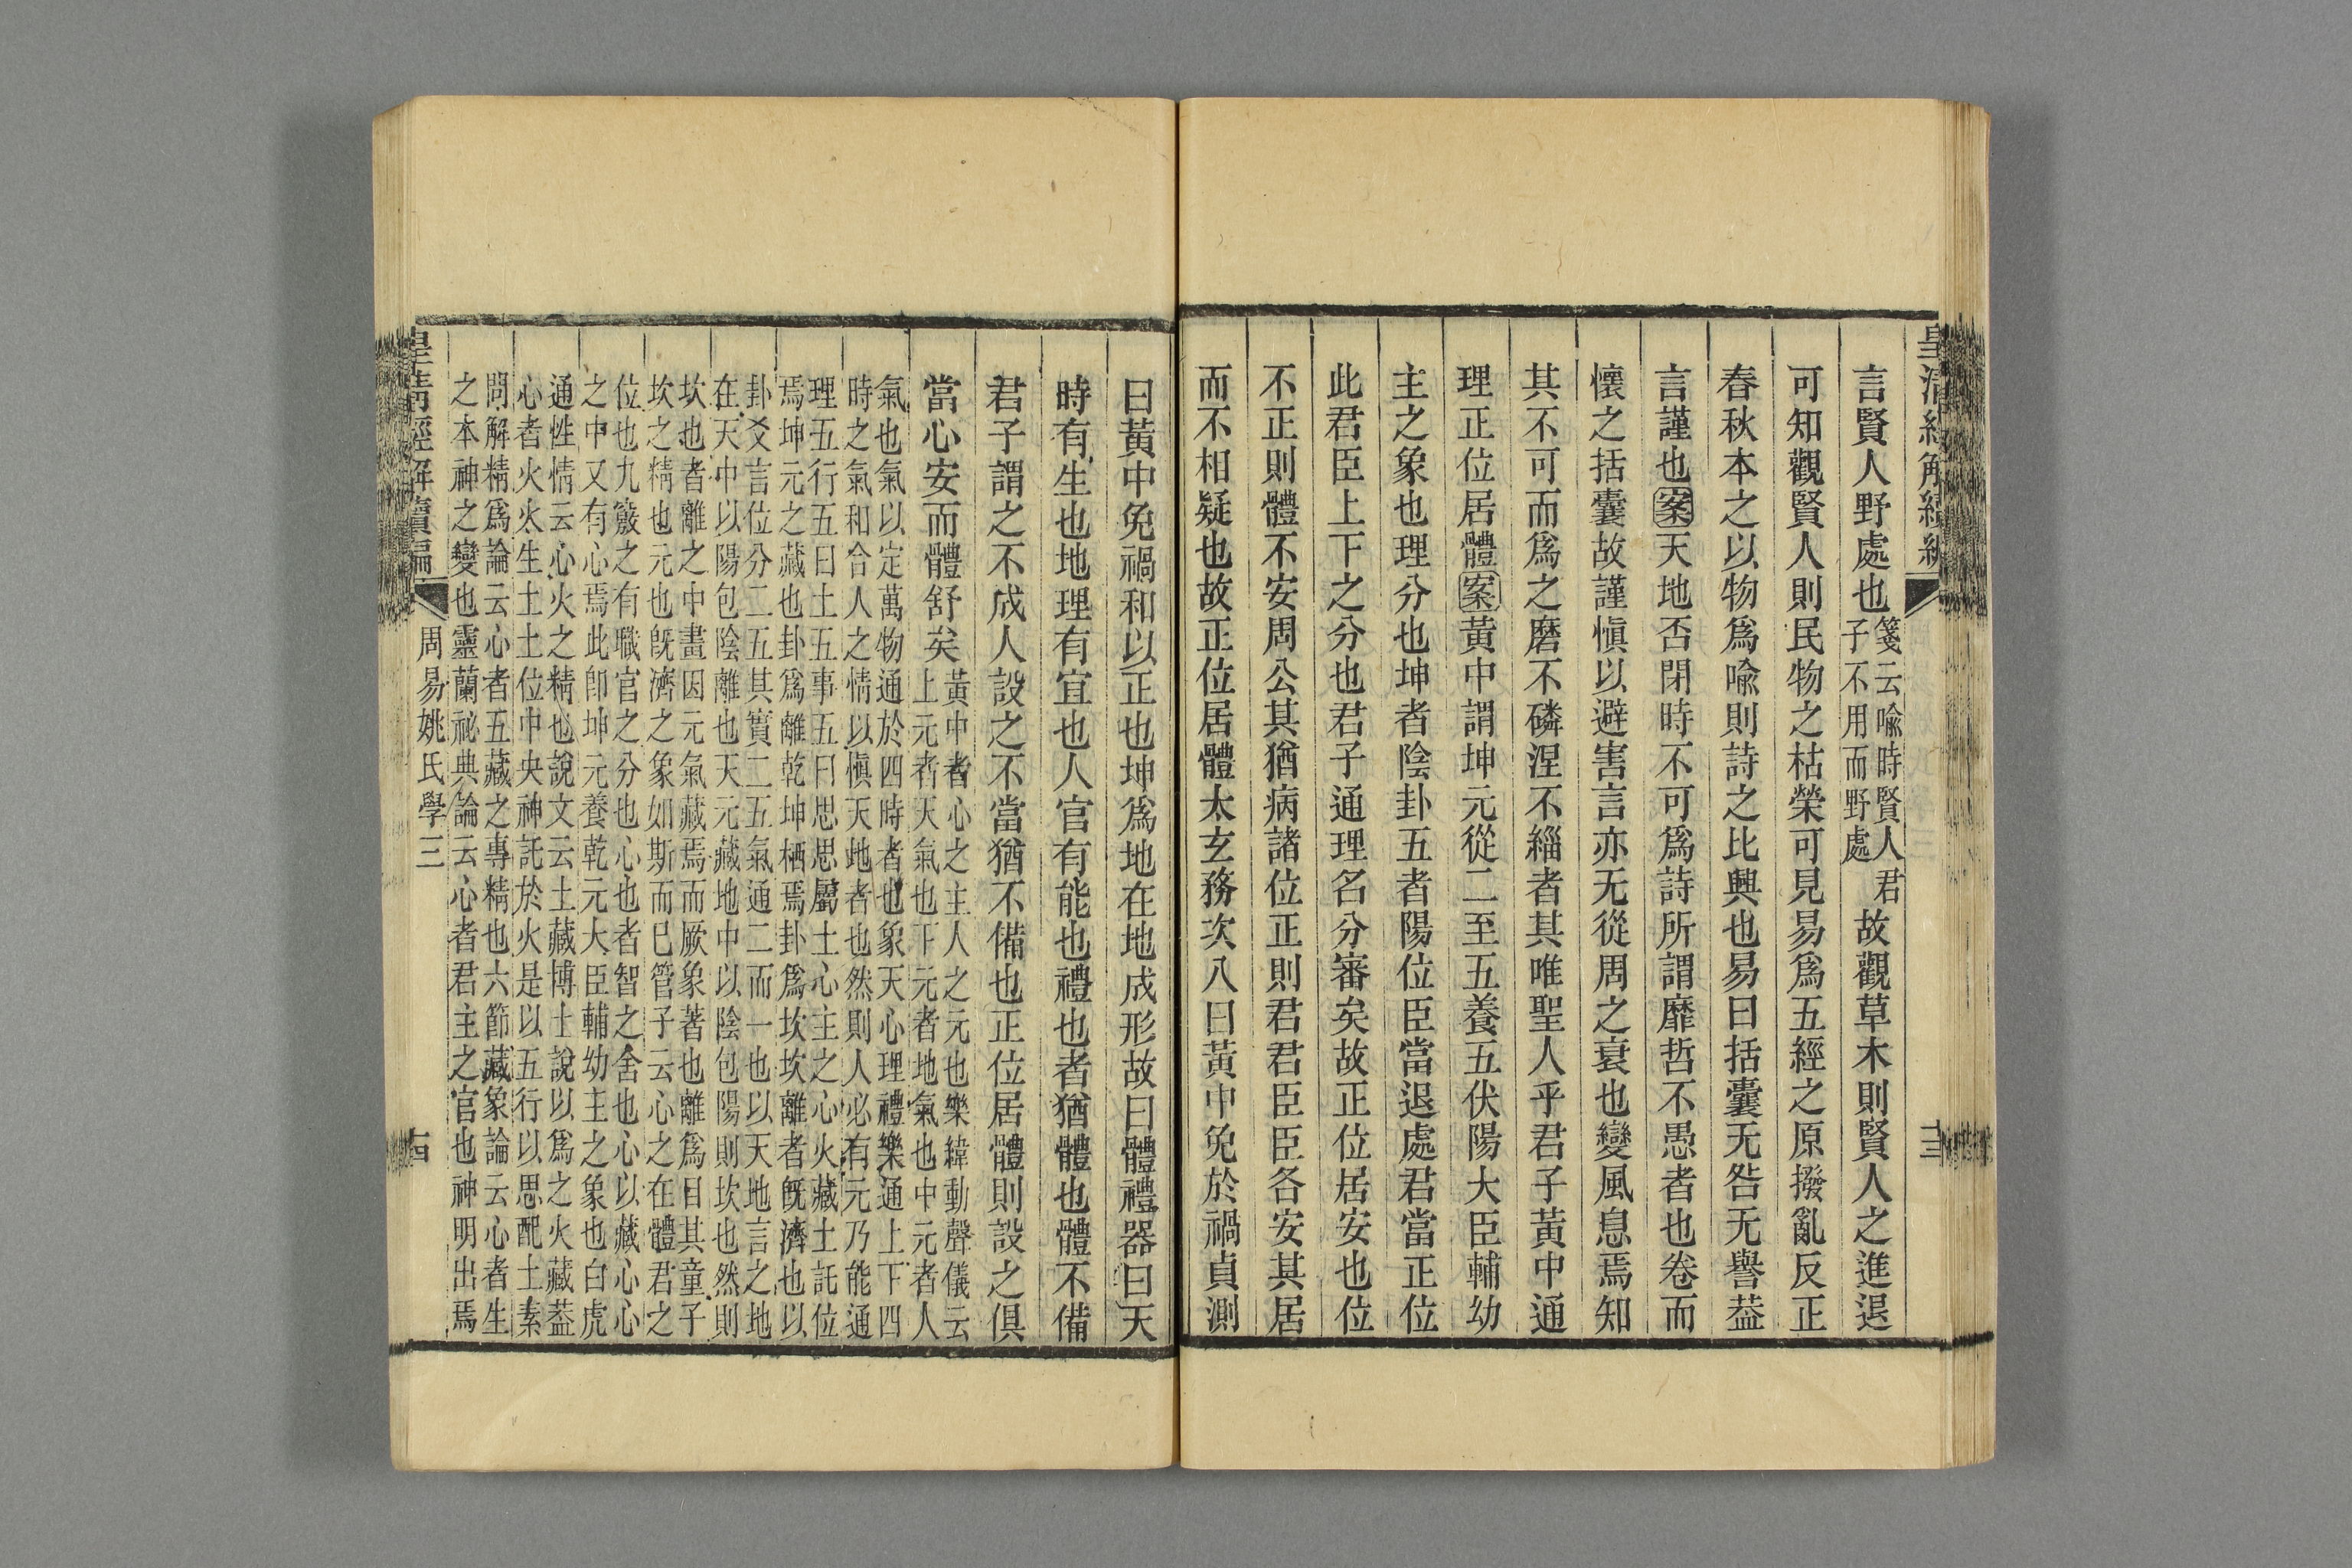 皇清經解續編
言賢人野處也箋云喻時賢人君子不用而野處故觀草木則賢人之進退
可知觀賢人則民物之枯榮可見易爲五經之原撥亂反正
春秋本之以物爲喻則詩之比興也易曰括囊无咎无譽葢
言謹也案天地否閉時不可爲詩所謂靡哲不愚者也卷而
懷之括囊故謹愼以避害言亦无從周之衰也變風息焉知
其不可而爲之磨不磷涅不緇者其唯聖人乎君子黃中通
理正位居體案黃中謂坤元從二至五養五伏陽大臣輔幼
主之象也理分也坤者陰卦五者陽位臣當退處君當正位
此君臣上下之分也君子通理名分審矣故正位居安也位
不正則體不安周公其猶病諸位正則君君臣臣各安其居
而不相疑也故正位居體太玄務次八曰黃中免於禍貞測
曰黃中免禍和以正也坤爲地在地成形故曰體禮器曰天
時有生也地理有宜也人官有能也禮也者猶體也體不備
君子謂之不成人設之不當猶不備也正位居體則設之俱
當心安而體舒矣
黃中者心之主人之元也樂緯動聲儀云
上元者天氣也下元者地氣也中元者人
氣也氣以定萬物通於四時者也象天心理禮樂通上下四
時之氣和合人之情以愼天地者也然則人必有元乃能通
理五行五曰土五事五曰思思屬土心主之心火藏土託位
焉坤元之藏也卦爲離乾坤栖焉卦爲坎坎離者旣濟也以
卦爻言位分二五其實二五氣通二而一也以天地言之地
在天中以陽包陰離也天元藏地中以陰包陽則坎也然則
坎也者離之中畫因元氣藏焉而厥象著也離爲目其童子
坎之精也元也旣濟之象如斯而已管子云心之在體君之
位也九竅之有職官之分也心也者智之舍也心以藏心心
之中又有心焉此卽坤元養乾元大臣輔幼主之象也白虎
通性情云心火之精也說文云土藏博士說以爲之火藏葢
心者火火生土土位中央神託於火是以五行以思配土素
問解精爲論云心者五藏之專精也六節藏象論云心者生
之本神之變也靈蘭祕典論云心者君主之官也神明出焉
皇清經解續編
周易姚氏學三